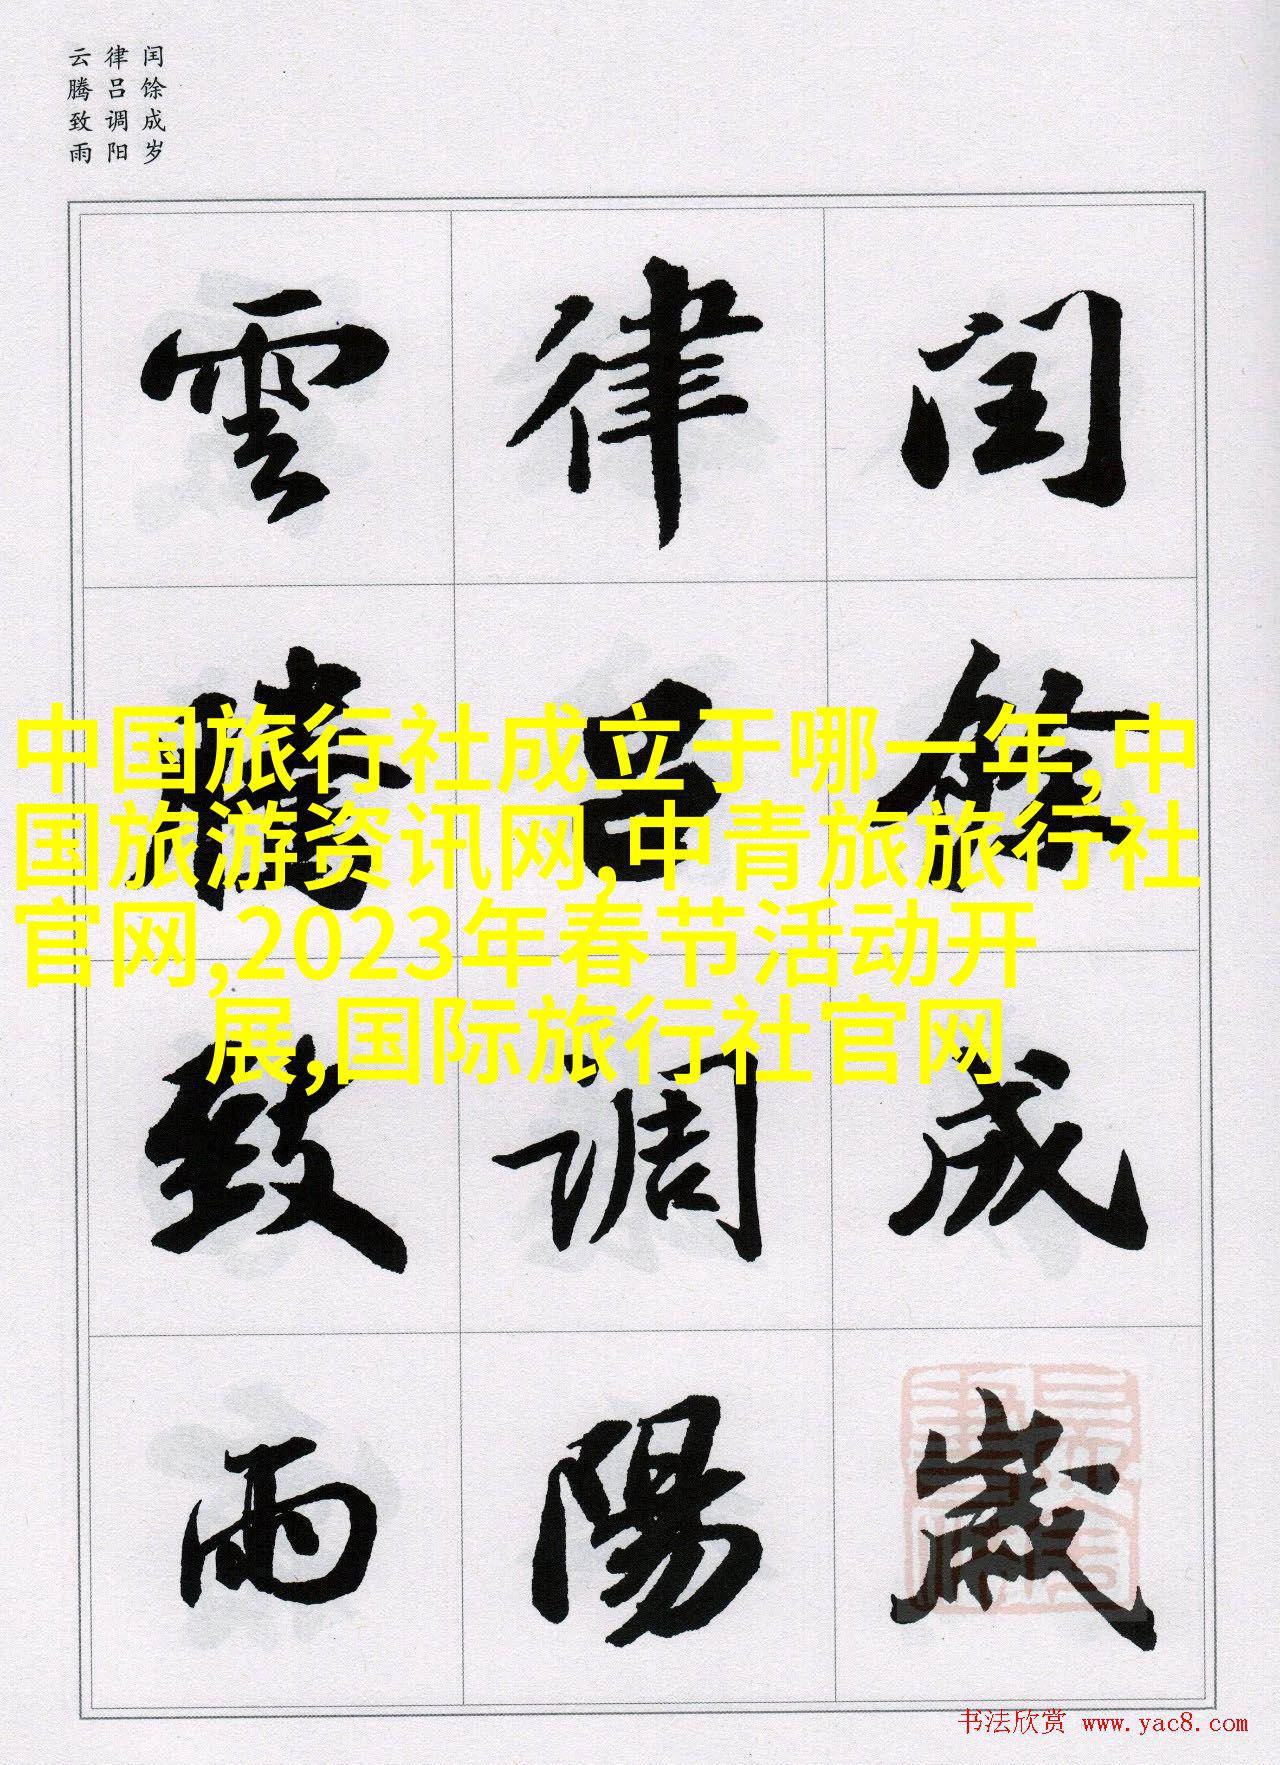 闰馀成岁
律吕调阳
云腾致雨
閏餘成歲
律呂調陽
雲騰致雨
中国旅行社成立于哪一年,中
国旅游资讯网,中青旅旅行社
官网,2023年春节活动开
展,国际旅行社官网
书法欣赏 www.yac8.com